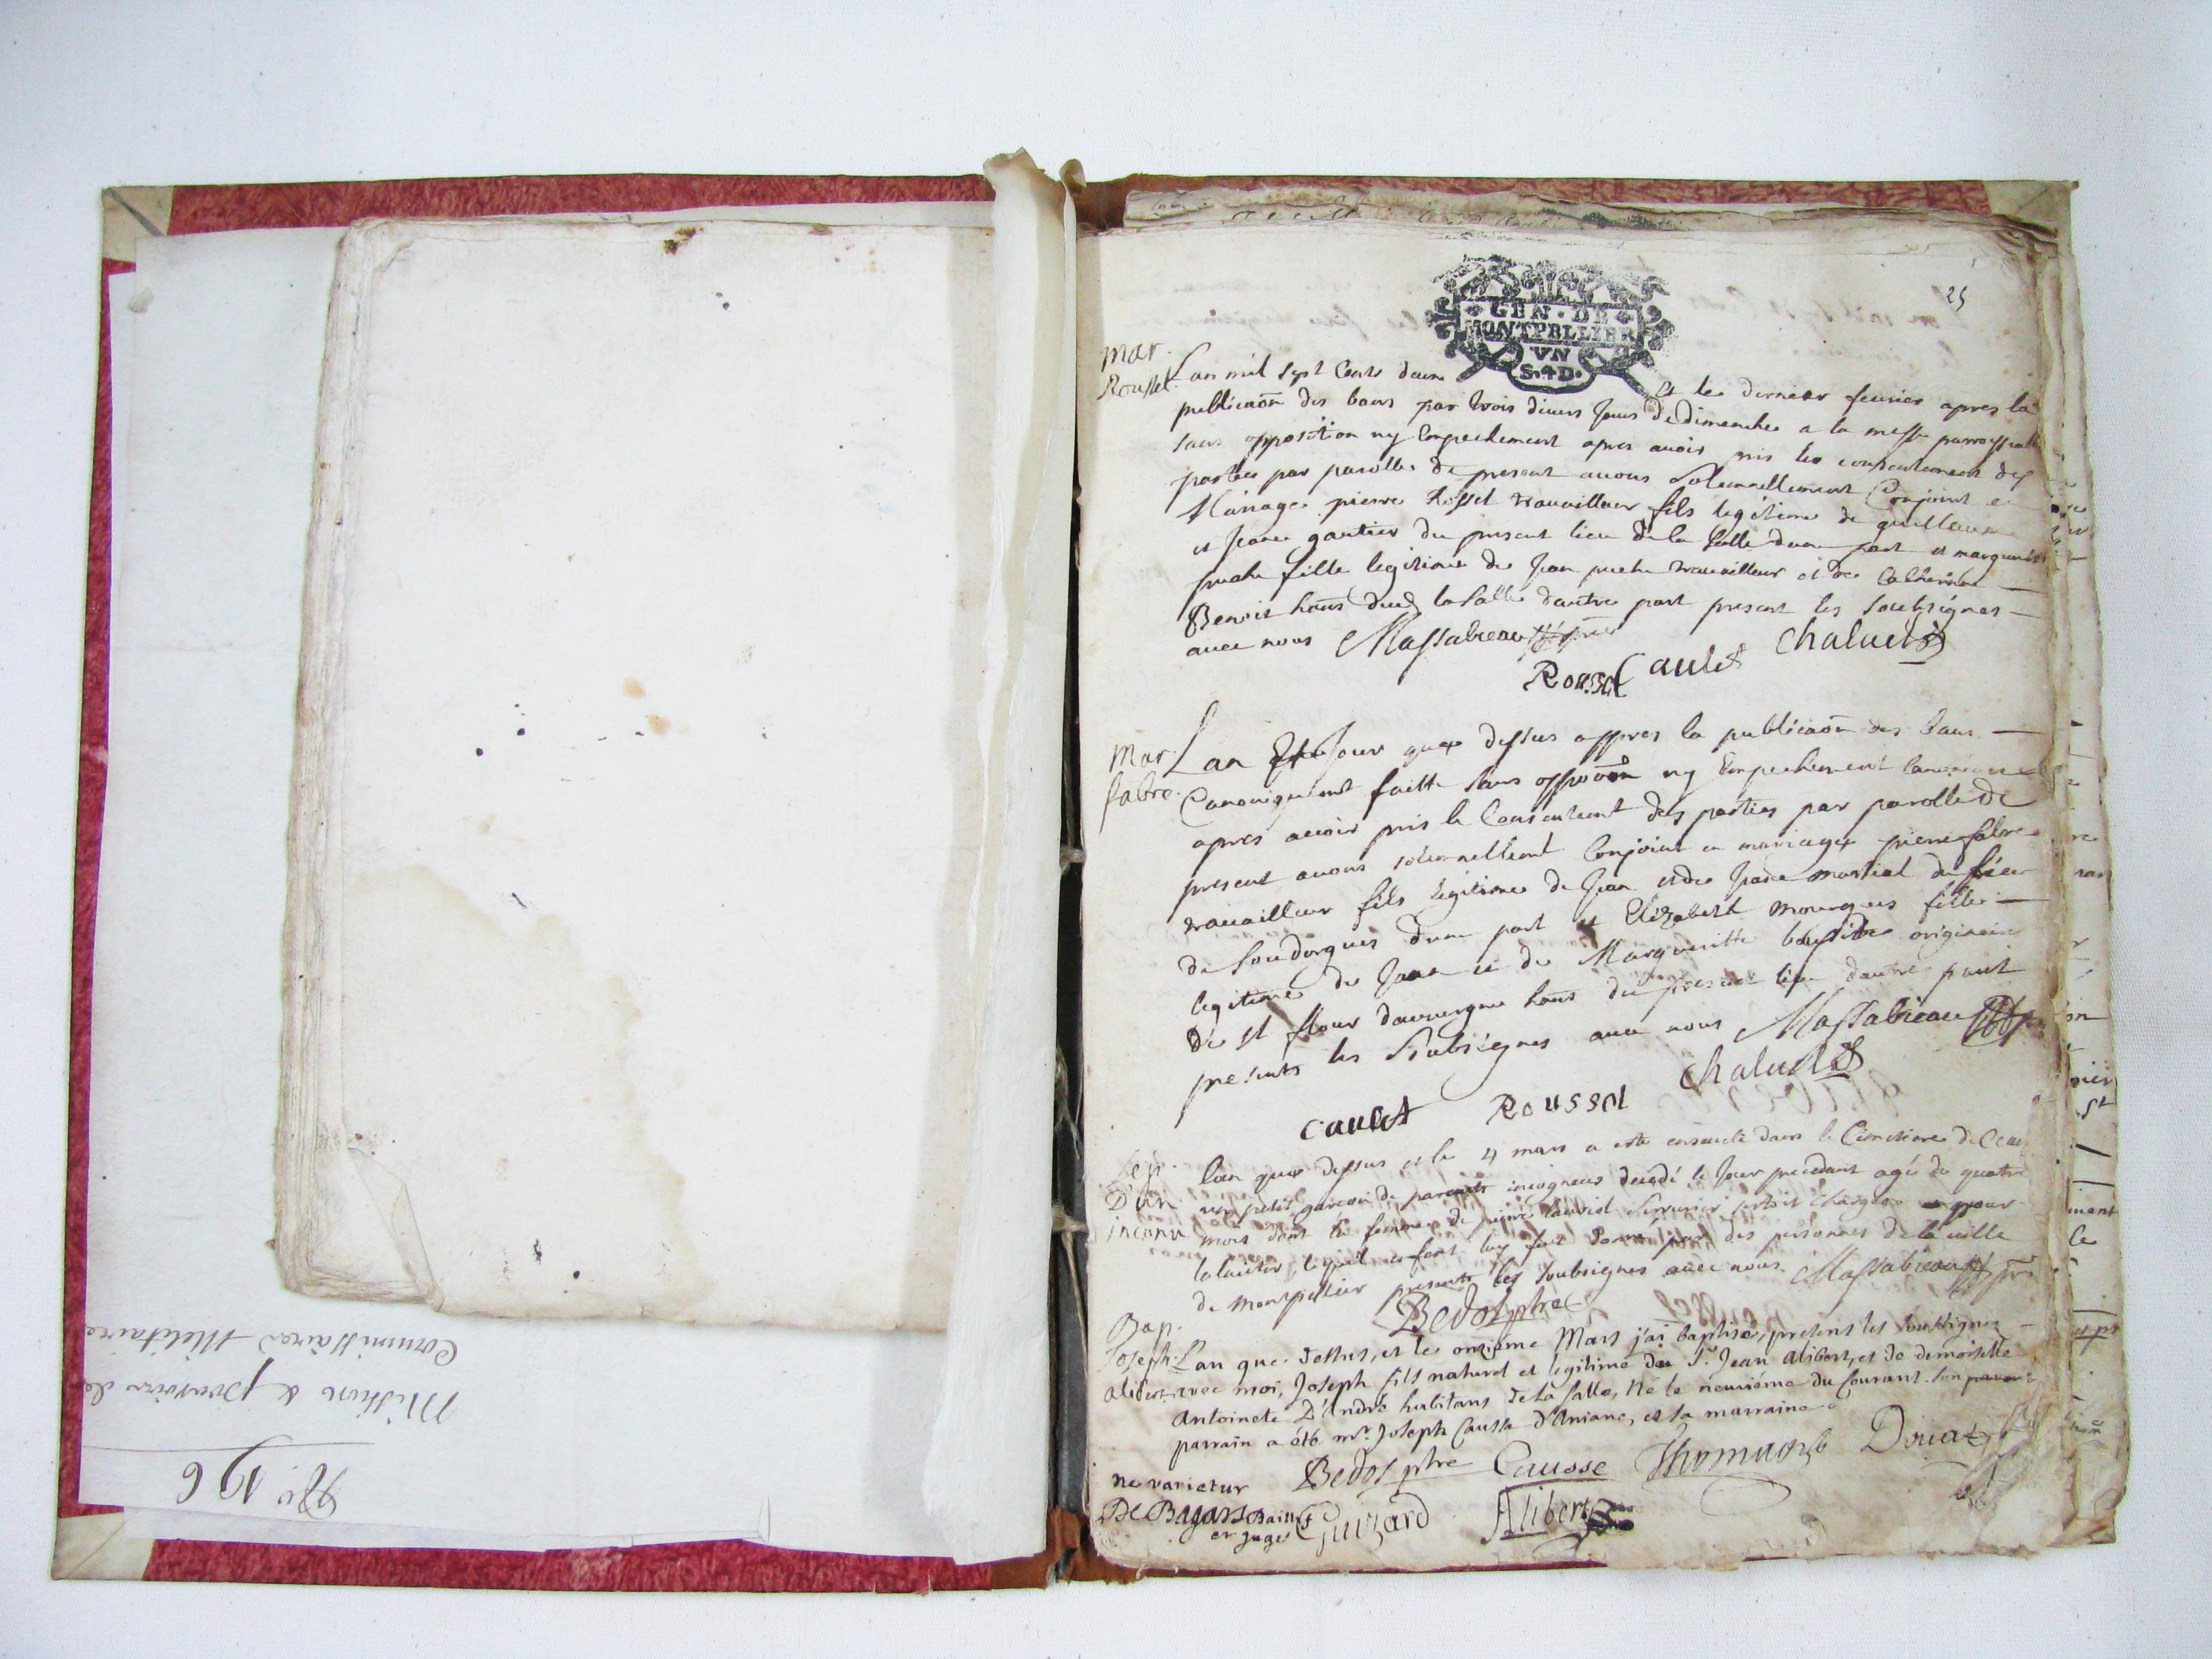 25
GEN · DE
MONTPELLIER
VN
S. 4 D.
mar.
Roussel
Lan mil sept Cents douze et le dernier feurier apres la
publicaõn des bans par trois diuers Jours de dimenche a la messe parroissialle
sans opposition ny Empechement apres auoir pris le consentement des
parties par parolle de present auons solemnellement Conjoint en
Mariage pierre Rossel trauailleur fils legitime de guillaume
et Jeane gautier du present lieu de la Salle dune part et marguerite
fille legitime de Jean trauailleur et de Catherine
Benoit habns dud la Salle dautre part present les soubsignes
auec nous Massabieau ptre
Roussel Caulet Chaluet
Mar.
fabre.
Lan Et Jour que dessus appres la publicaõn des bans
Canoniquement faitte sans oppoõn ny Empechement Canonique
apres auoir pris le Consentement des parties par parolle de
present auons solemnellement Conjoint en mariage pierre fabre
trauailleur fils legitime de Jean et de Jeane martial du lieu
de Soudorgues dune part et Elizabeth mourgues fille
legitime de Jean et de Margueritte originaire
de st flour dauuergne habns du present lieu dautre part
presents les soubsignes auec nous Massabieau ptre
Caulet Roussel Chaluet
Sep.
D'un
inconu
Lan que dessus et le 4 mars a este enseueli dans le Cimetiere de Ceans
un petit garcon de parents incogneus decedé le Jour precedant agé de quatre
mois dont la femme de pierre serrurier sestoit chargee pour
lalaiter, lequel enfant luy fut donné par des personnes de la uille
de Montpellier presents les soubsignes auec nous. Massabieau ptre
Bedos ptre
Bap.
Joseph
alibert
L'an que dessus, et le onzieme Mars j'ai baptisé, presens les soussignez
avec moi, Joseph fils naturel et legitime du Sr. Jean Alibert, et de demoiselle
Antoinete D'André habitans de la Salle, né le neuvième du Courant. son
parrain a été mr. Joseph Causse d'Aniane, et sa marraine
Bedos ptre Causse Thomas Douat
ne varietur
De Bagars Bailly
et Juge
Guizard Alibert
No. 196
Mission & pouvoirs de
Commissaires Militaire